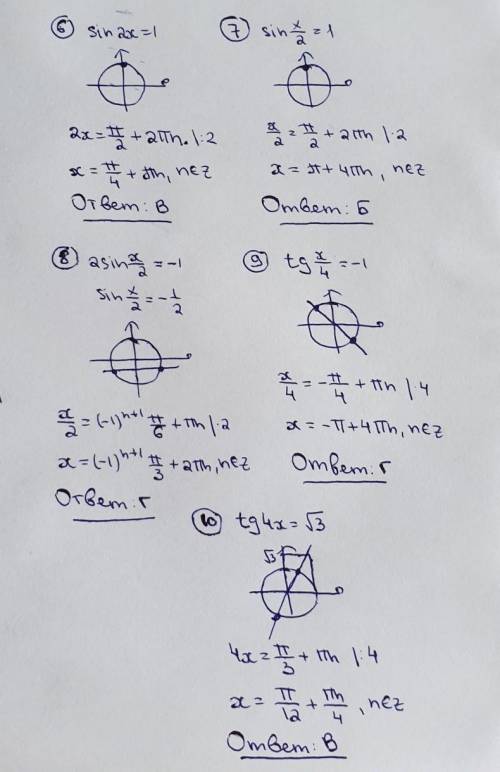 ⑥ sin2x=1
2x=π/2+2πn |:2
x=π/4+πn, n∈Z
Ответ: В
⑦ sin x/2=1
x/2=π/2+2πn |·2
x=π+4πn, n∈Z
Ответ: Б
⑧ 2sin x/2=-1
sin x/2=-1/2
x/2=(-1)ⁿ⁺¹ π/6+πn |·2
x=(-1)ⁿ⁺¹ π/3+2πn, n∈Z
Ответ: Г
⑨ tg x/4=-1
x/4=-π/4+πn |·4
x=-π+4πn, n∈Z
Ответ: Г
⑩ tg4x=√3
√3
4x=π/3+πn |:4
x=π/12+πn/4, n∈Z
Ответ: В